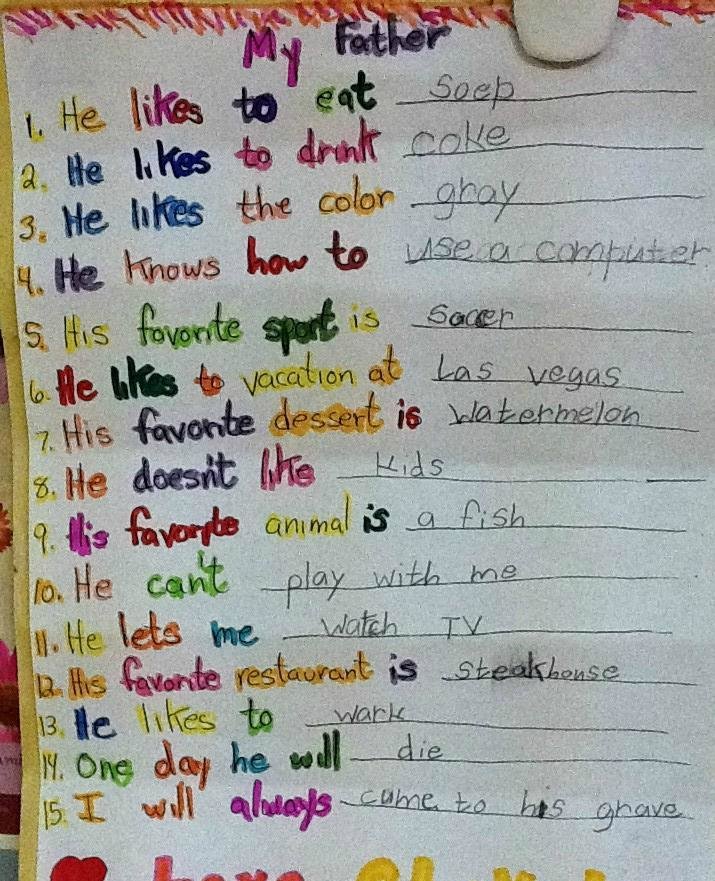 My Father
1. He likes to eat soep
2. He likes to drink coke
3. He likes the color gray
4. He knows how to use a computer
5. His favorite sport is Soccer
6. He likes to vacation at Las vegas
7. His favorite dessert is watermelon
8. He doesn't like kids
9. His favorite animal is a fish
10. He can't play with me
11. He lets me watch TV
12. His favorite restaurant is steakhouse
13. He likes to wark
14. One day he will die
15. I will always came to his grave